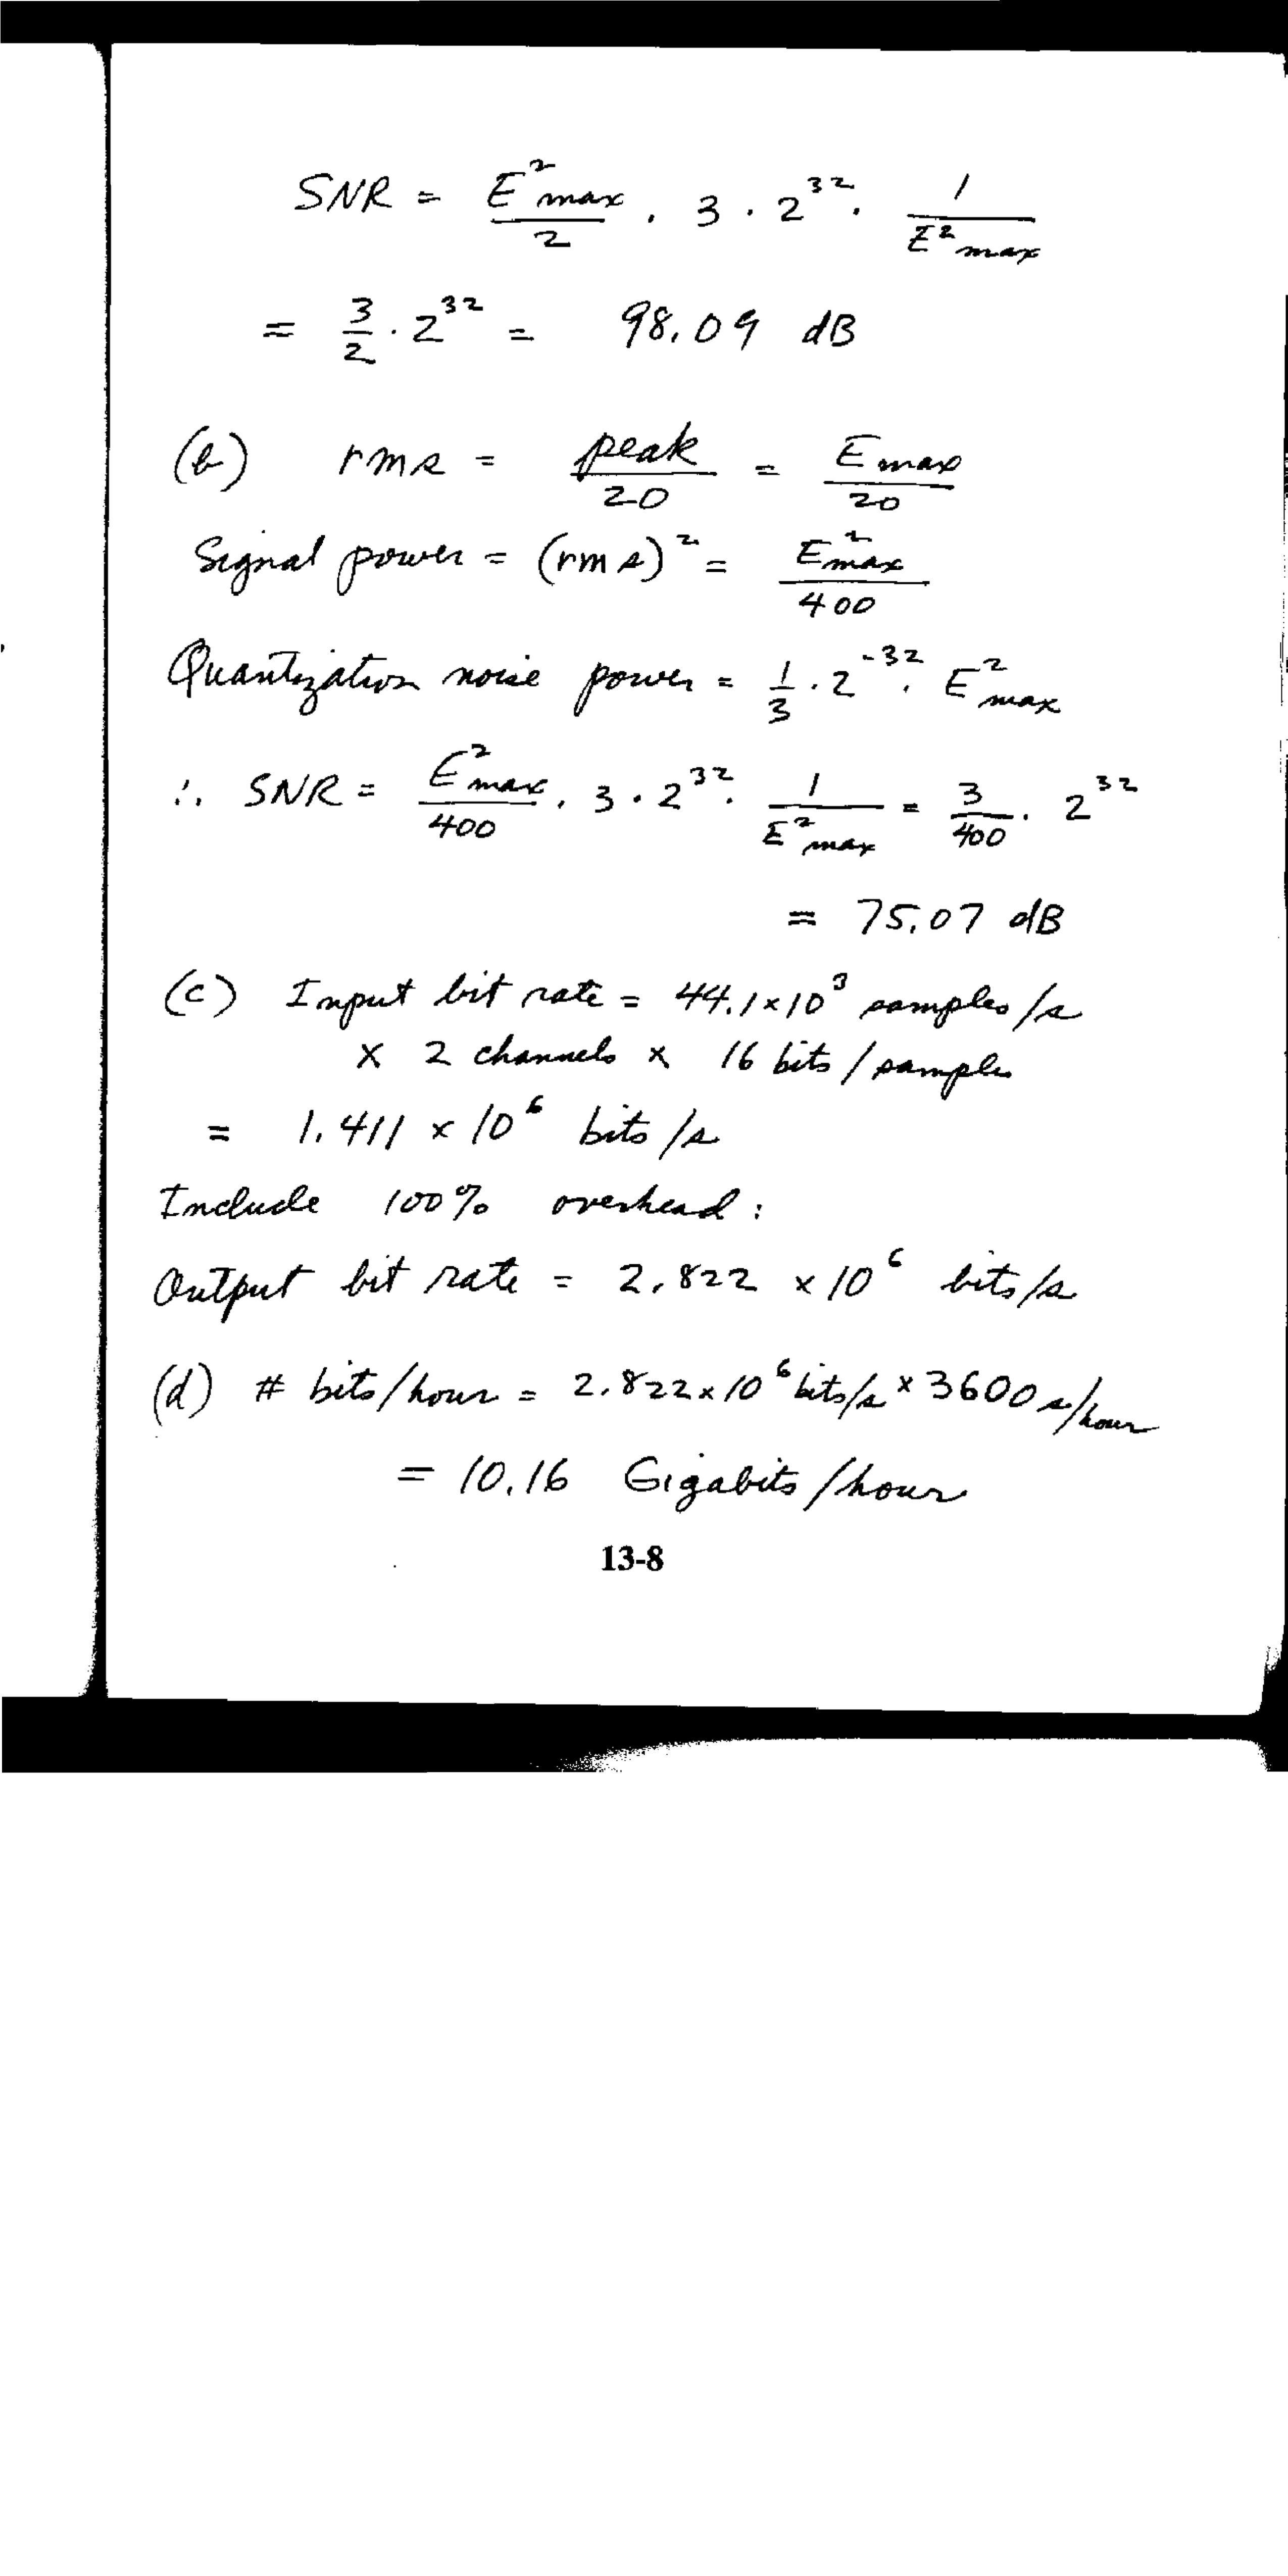 SNR = E²max/2 · 3 · 2³² · 1/E²max
= 3/2 · 2³² = 98.09 dB
(b) rms = peak/20 = Emax/20
Signal power = (rms)² = E²max/400
Quantization noise power = 1/3 · 2⁻³² · E²max
∴ SNR = E²max/400 · 3 · 2³² · 1/E²max = 3/400 · 2³²
= 75.07 dB
(c) Input bit rate = 44.1×10³ samples/s
× 2 channels × 16 bits/samples
= 1.411 × 10⁶ bits/s
Include 100% overhead:
Output bit rate = 2.822 × 10⁶ bits/s
(d) # bits/hour = 2.822×10⁶ bits/s × 3600 s/hour
= 10.16 Gigabits/hour
13-8